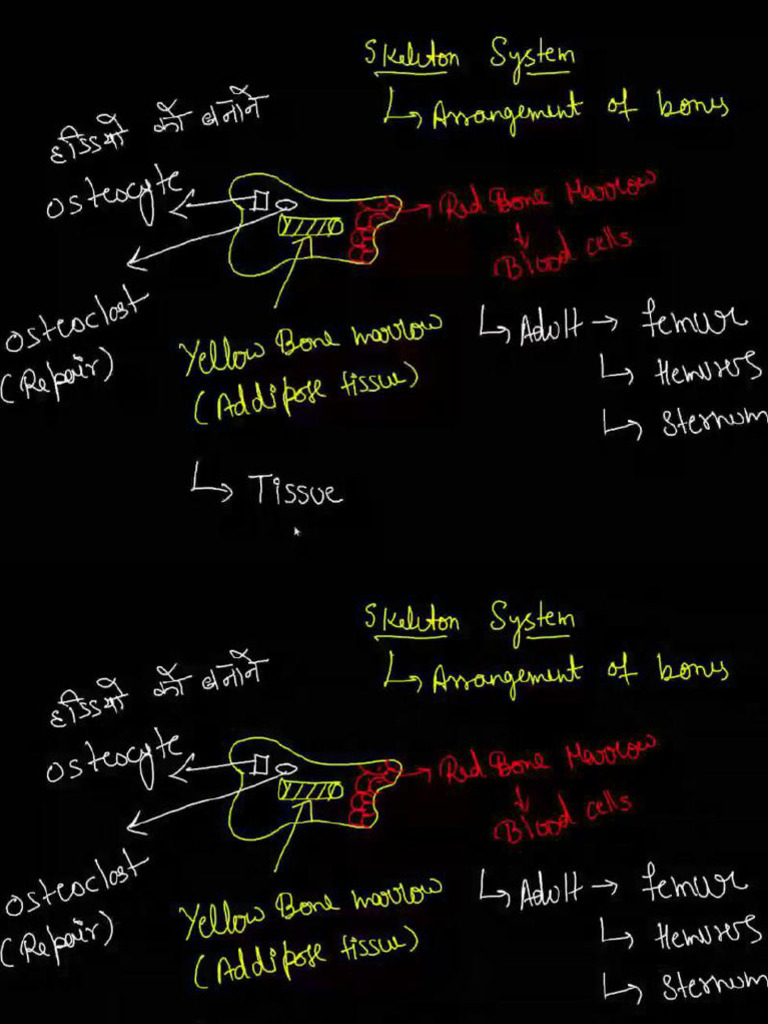 Skeleton System
↳ Arrangement of bones
हड्डियों को बनाने
osteocyte
Red Bone Marrow
↓
Blood cells
osteoclast
(Repair)
Yellow Bone marrow
(Addipose tissue)
↳ Adult → femur
↳ Hemures
↳ Sternum
↳ Tissue
Skeleton System
↳ Arrangement of bones
हड्डियों को बनाने
osteocyte
Red Bone Marrow
↓
Blood cells
osteoclast
(Repair)
Yellow Bone marrow
(Addipose tissue)
↳ Adult → femur
↳ Hemures
↳ Sternum